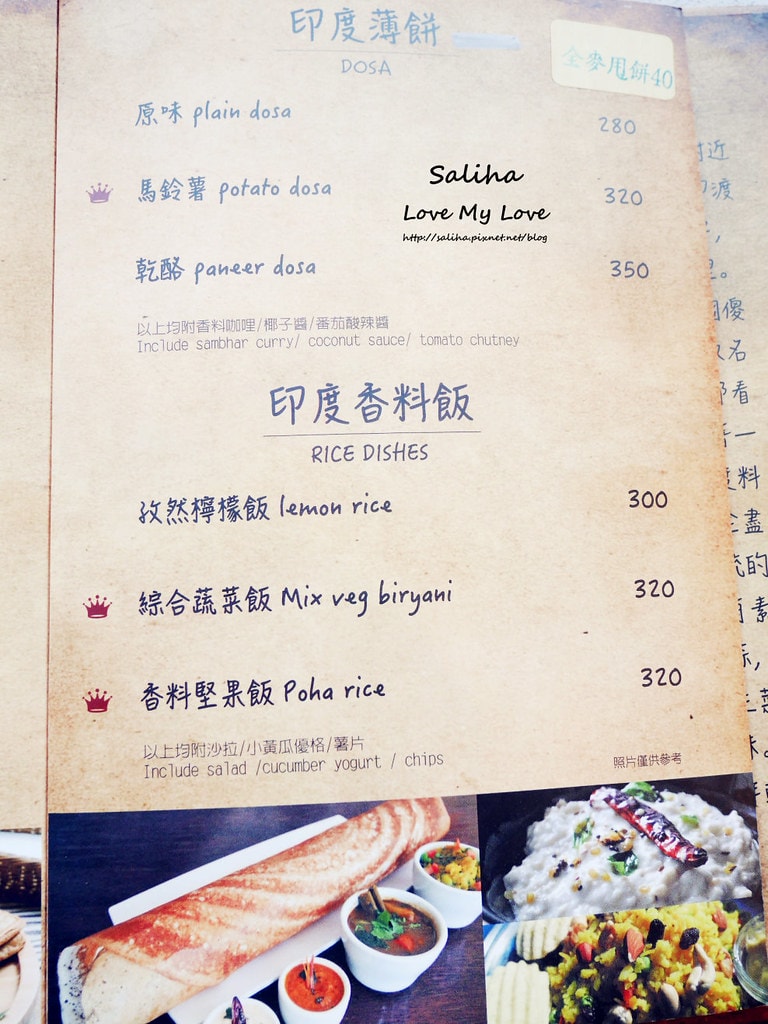 印度薄餅
DOSA
全麥甩餅40
原味 plain dosa 280
馬鈴薯 potato dosa 320
乾酪 paneer dosa 350
Saliha
Love My Love
http://saliha.pixnet.net/blog
以上均附香料咖哩/椰子醬/番茄酸辣醬
Include sambhar curry/ coconut sauce/ tomato chutney
印度香料飯
RICE DISHES
孜然檸檬飯 lemon rice 300
綜合蔬菜飯 Mix veg biryani 320
香料堅果飯 Poha rice 320
以上均附沙拉/小黃瓜優格/薯片
Include salad /cucumber yogurt / chips
照片僅供參考